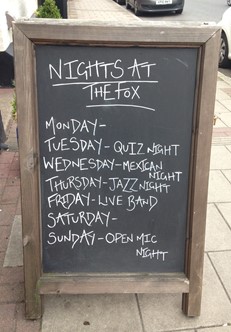 NIGHTS AT
THE FOX
MONDAY-
TUESDAY- QUIZ NIGHT
WEDNESDAY-MEXICAN
NIGHT
THURSDAY-JAZZ NIGHT
FRIDAY-LIVE BAND
SATURDAY-
SUNDAY-OPEN MIC
NIGHT